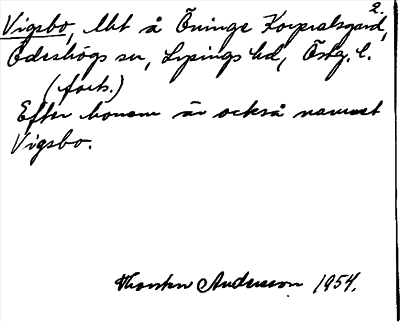 2.
Vigsbo, lht å Öninge Korpralsgård,
Ödeshögs sn, Lysings hd, Östg. l.
(forts.)
Efter honom är också namnet
Vigsbo.
Thorsten Andersson 1954.